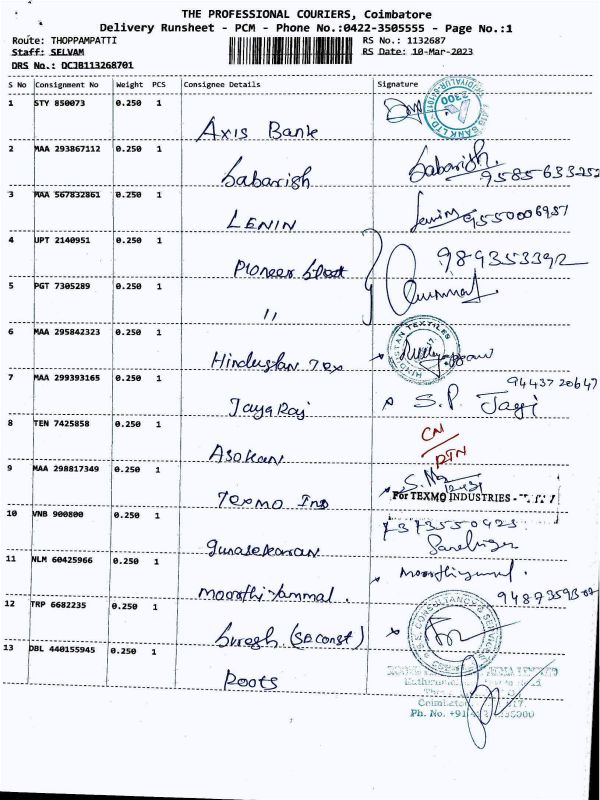 THE PROFESSIONAL COURIERS, Coimbatore
Delivery Runsheet - PCM - Phone No.:0422-3505555 - Page No.:1
Route: THOPPAMPATTI RS No.: 1132687
Staff: SELVAM RS Date: 10-Mar-2023
DRS No.: DCJB113268701
S No Consignment No Weight PCS Consignee Details Signature
1 STY 850073 0.250 1 Axis Bank
2 MAA 293867112 0.250 1 Sabarish Sabarish. 9585633252
3 MAA 567832861 0.250 1 LENIN Lenin 9550006957
4 UPT 2140951 0.250 1 Pioneer 989353392
5 PGT 7305289 0.250 1 "
6 MAA 295842323 0.250 1 Hindustan Tex HINDUSTAN TEXTILES
7 MAA 299393165 0.250 1 Jayaraj S.P. 9443720647
8 TEN 7425858 0.250 1 Asokan CN RTN
9 MAA 298817349 0.250 1 Texmo Ind For TEXMO INDUSTRIES -
10 VNB 900800 0.250 1 Gunasekaran 7373550423
11 NLM 60425966 0.250 1 Moorthiyammal.
12 TRP 6682235 0.250 1 Suresh (SB const)
13 DBL 440155945 0.250 1 Roots
Ph. No. +91